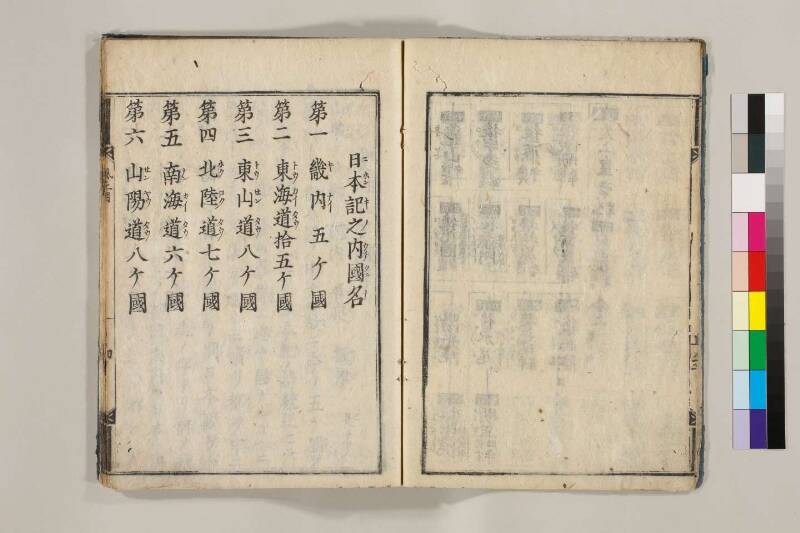 日本記之内國名
第一 畿内 五ケ國
第二 東海道拾五ケ國
第三 東山道八ケ國
第四 北陸道七ケ國
第五 南海道六ケ國
第六 山陽道八ケ國